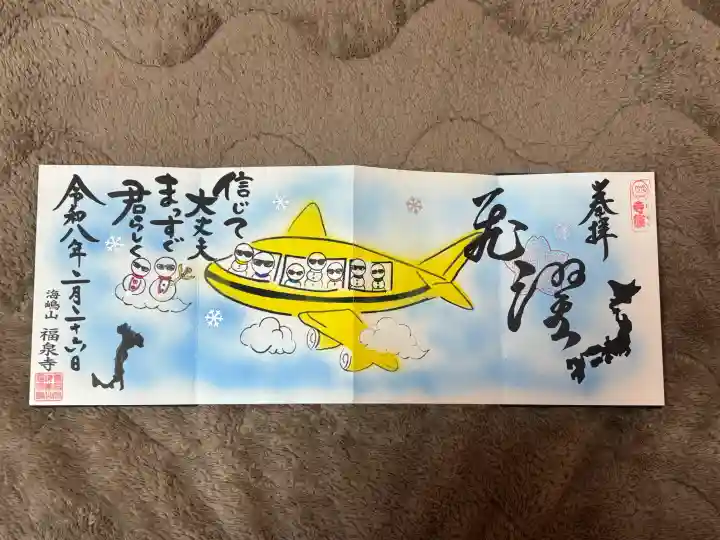 奉拝
飛躍
信じて
大丈夫
まっすぐ
君らしく
令和八年二月二十六日
海嶋山 福泉寺